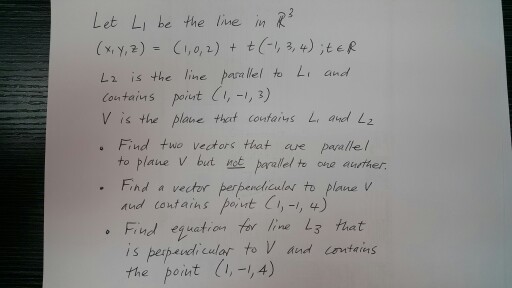 Let L1 be the line in ℝ³
(x,y,z) = (1,0,2) + t(-1,3,4) ; t ∈ ℝ
L2 is the line parallel to L1 and
contains point (1,-1,3)
V is the plane that contains L1 and L2
• Find two vectors that are parallel
to plane V but not parallel to one another.
• Find a vector perpendicular to plane V
and contains point (1,-1,4)
• Find equation for line L3 that
is perpendicular to V and contains
the point (1,-1,4)